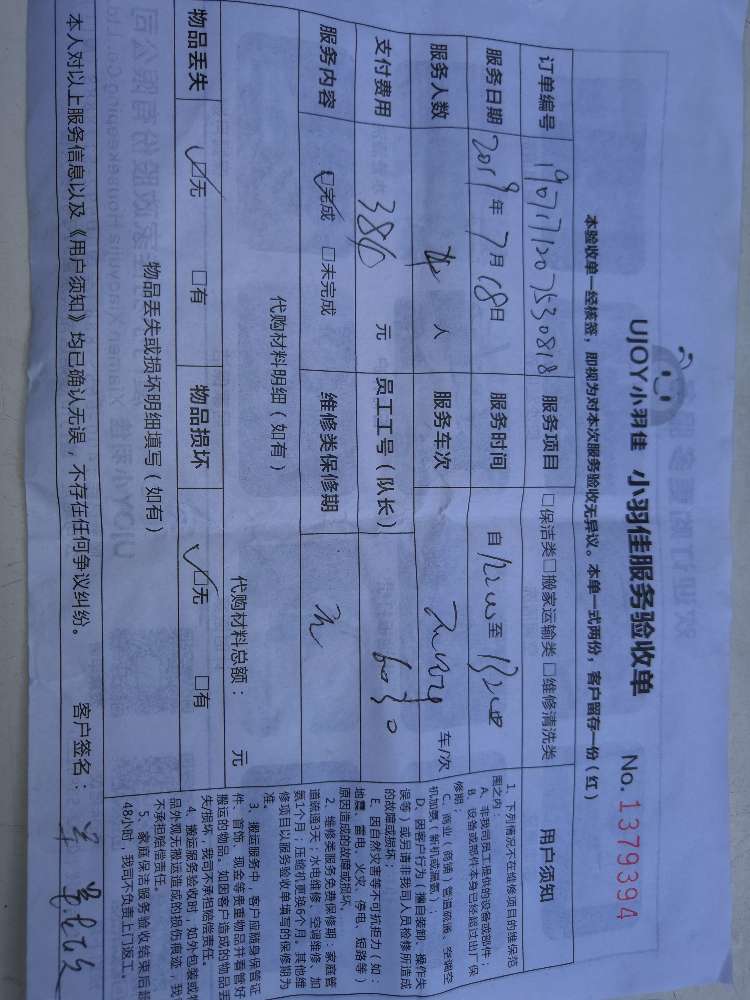 UJOY小羽佳 小羽佳服务验收单 No. 1379394
本验收单一经核签，即视为对本次服务验收无异议。本单一式两份，客户留存一份（红）
订单编号 1907171207530818 服务项目 □保洁类□搬家运输类□维修清洗类
服务日期 2019年7月18日 服务时间 自 至
服务人数 人 服务车次 车/次
支付费用 386 元 员工工号（队长） 6030
服务内容 □完成 □未完成 维修类保修期
代购材料明细（如有） 代购材料总额： 元
物品丢失 □无 □有 物品损坏 □无 □有
物品丢失或损坏明细填写（如有）
本人对以上服务信息以及《用户须知》均已确认无误，不存在任何争议纠纷。 客户签名：
用户须知
1、下列情况不在维修项目的维保范
围之内：
A、非我司员工提供的设备或部件；
B、设备或部件本身已经超过出厂保
修期；
C、商业（商铺）管道疏通、空调空
机加氨（新机或漏氨）；
D、因客户行为（擅自装卸、操作失
误等）或另请非我司人员检修所造成
的故障或损坏；
E、因自然灾害等不可抗拒力（如：
地震、雷电、火灾、停电、短路等）
原因造成的故障或损坏。
2、维修类服务免费保修期：家庭管
道疏通3天；水电维修、空调维修、加
氨1个月；压缩机更换6个月。其他维
修项目以服务验收单填写的保修期为
准。
3、搬运服务中，客户应随身保管证
件、首饰、现金等贵重物品并看管好
搬运的物品。如因客户造成的物品丢
失/损坏，我司不承担赔偿责任。
4、搬运服务验收时，如外包装或物
品外观无搬运造成的损伤痕迹，我司
不承担赔偿责任。
5、家庭保洁服务验收结束后超
48小时，我司不负责上门返工。